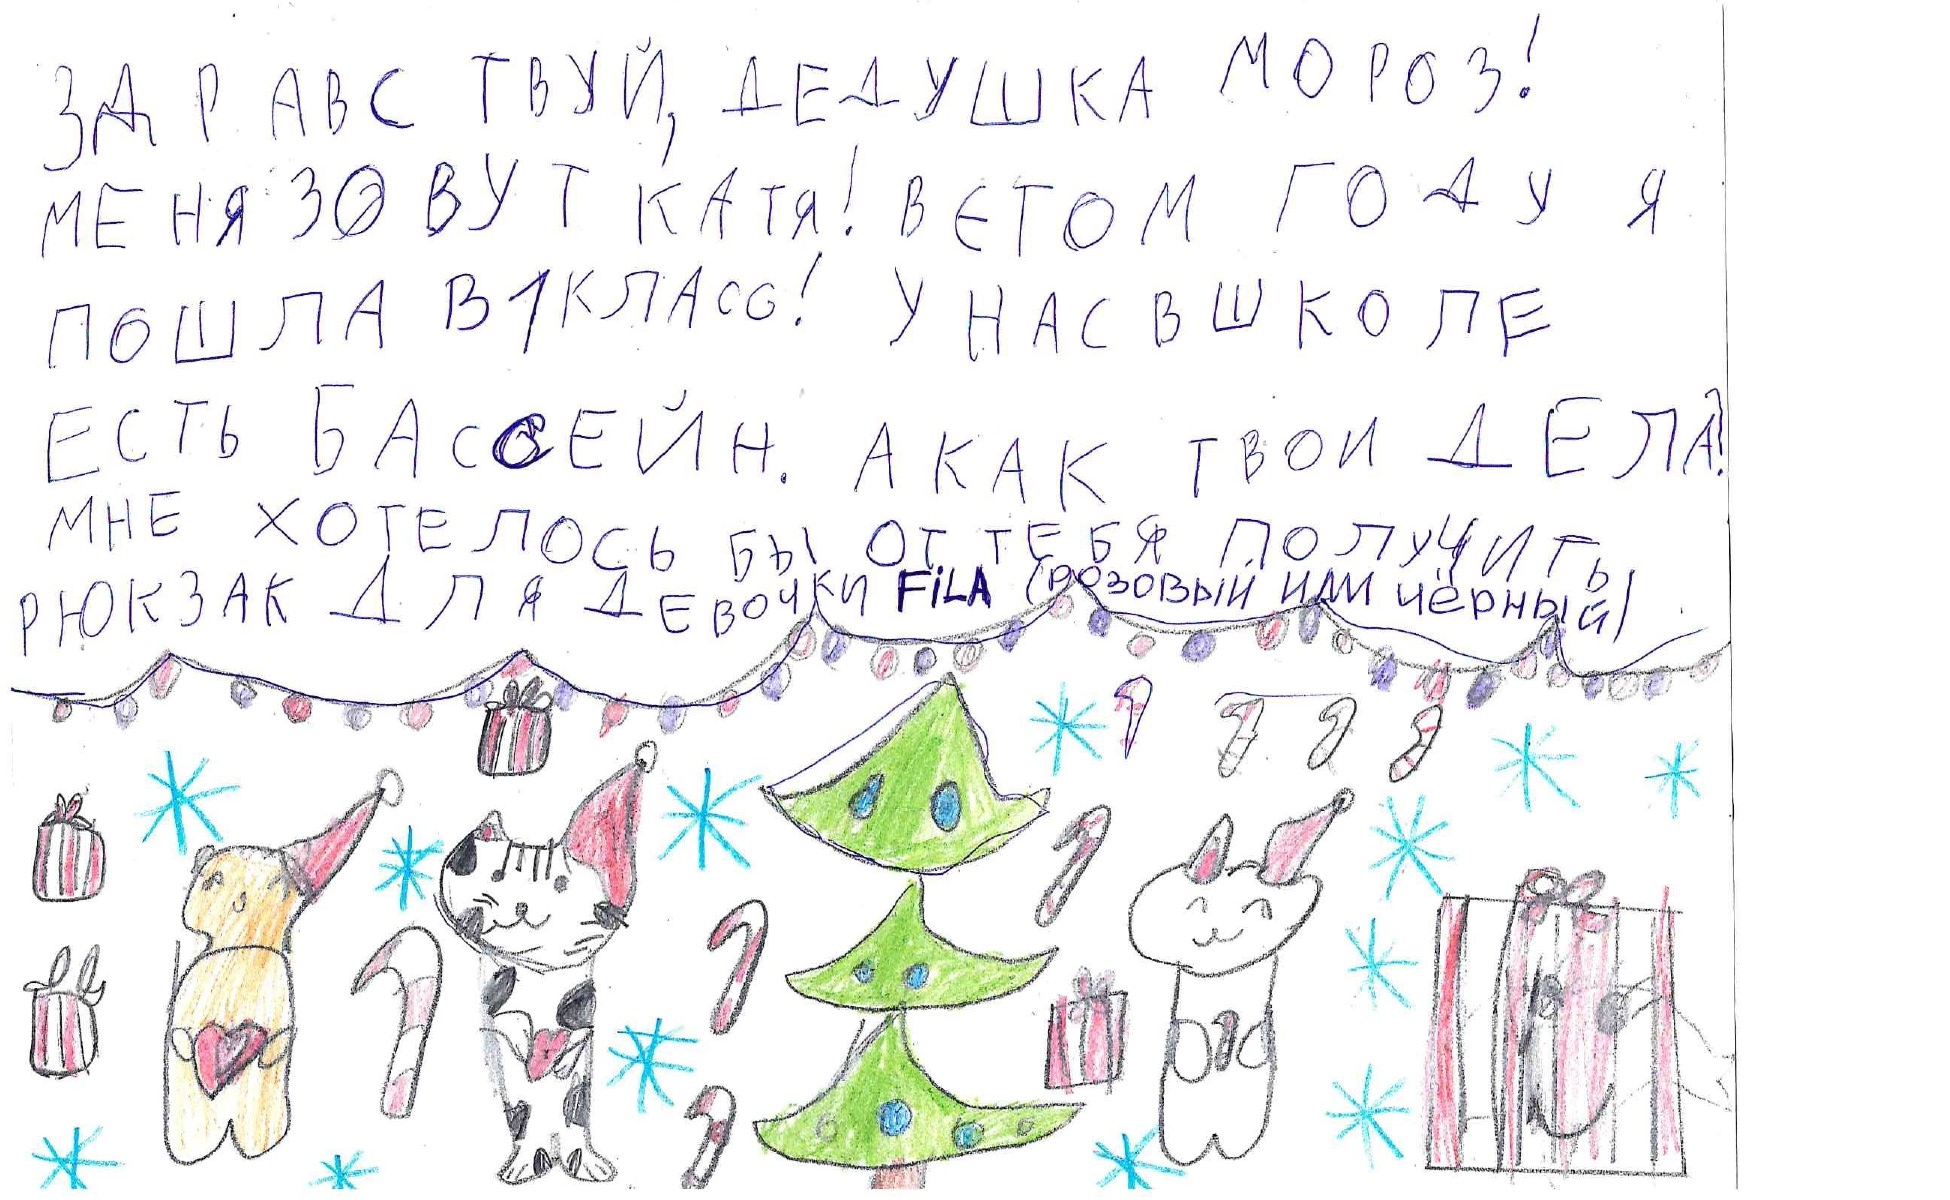 ЗДРАВСТВУЙ, ДЕДУШКА МОРОЗ!
МЕНЯ ЗОВУТ КАТЯ! В ЕТОМ ГОДУ Я
ПОШЛА В 1 КЛАСС! У НАС В ШКОЛЕ
ЕСТЬ БАССЕЙН. А КАК ТВОИ ДЕЛА?
МНЕ ХОТЕЛОСЬ БЫ ОТ ТЕБЯ ПОЛУЧИТЬ
РЮКЗАК ДЛЯ ДЕВОЧКИ FiLA (РОЗОВЫЙ ИЛИ ЧЁРНЫЙ)